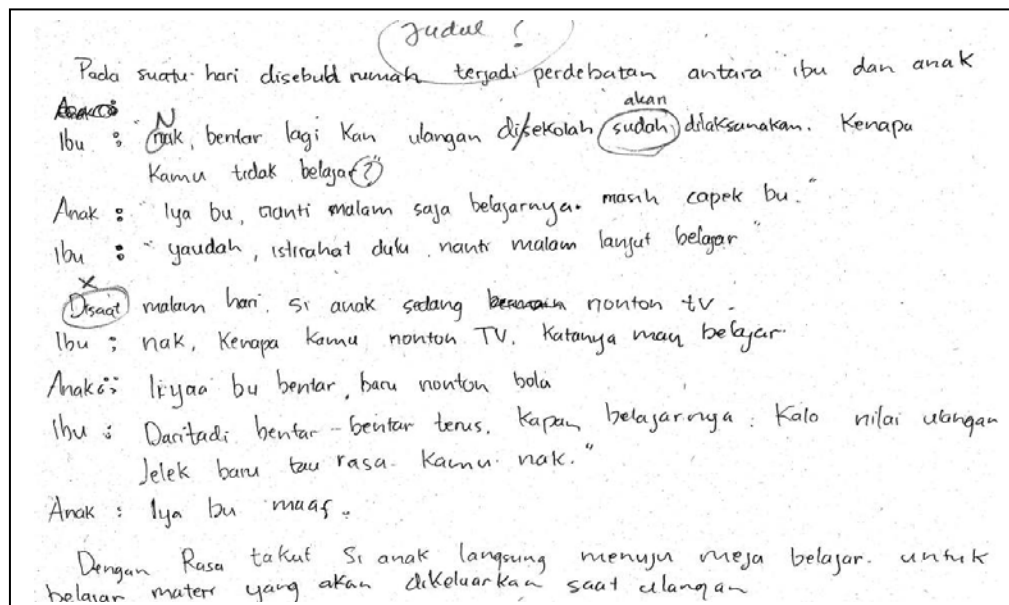 Judul ?
Pada suatu hari disebuld rumah terjadi perdebatan antara ibu dan anak
akan
Ibu : "Nak, bentar lagi kan ulangan disekolah sudah dilaksanakan. Kenapa
kamu tidak belajar?"
Anak : "Iya bu, nanti malam saja belajarnya. masih capek bu."
Ibu : "yaudah, istirahat dulu nanti malam lanjut belajar"
X
Disaat malam hari. si anak sedang nonton tv.
Ibu : nak, Kenapa kamu nonton TV. Katanya mau belajar.
Anak : Iiyaa bu bentar, baru nonton bola
Ibu : Daritadi bentar-bentar terus. Kapan belajarnya. Kalo nilai ulangan
Jelek baru tau rasa. Kamu nak."
Anak : Iya bu maaf.
Dengan Rasa takut Si anak langsung menuju meja belajar. untuk
belajar materi yang akan dikeluarkan saat ulangan